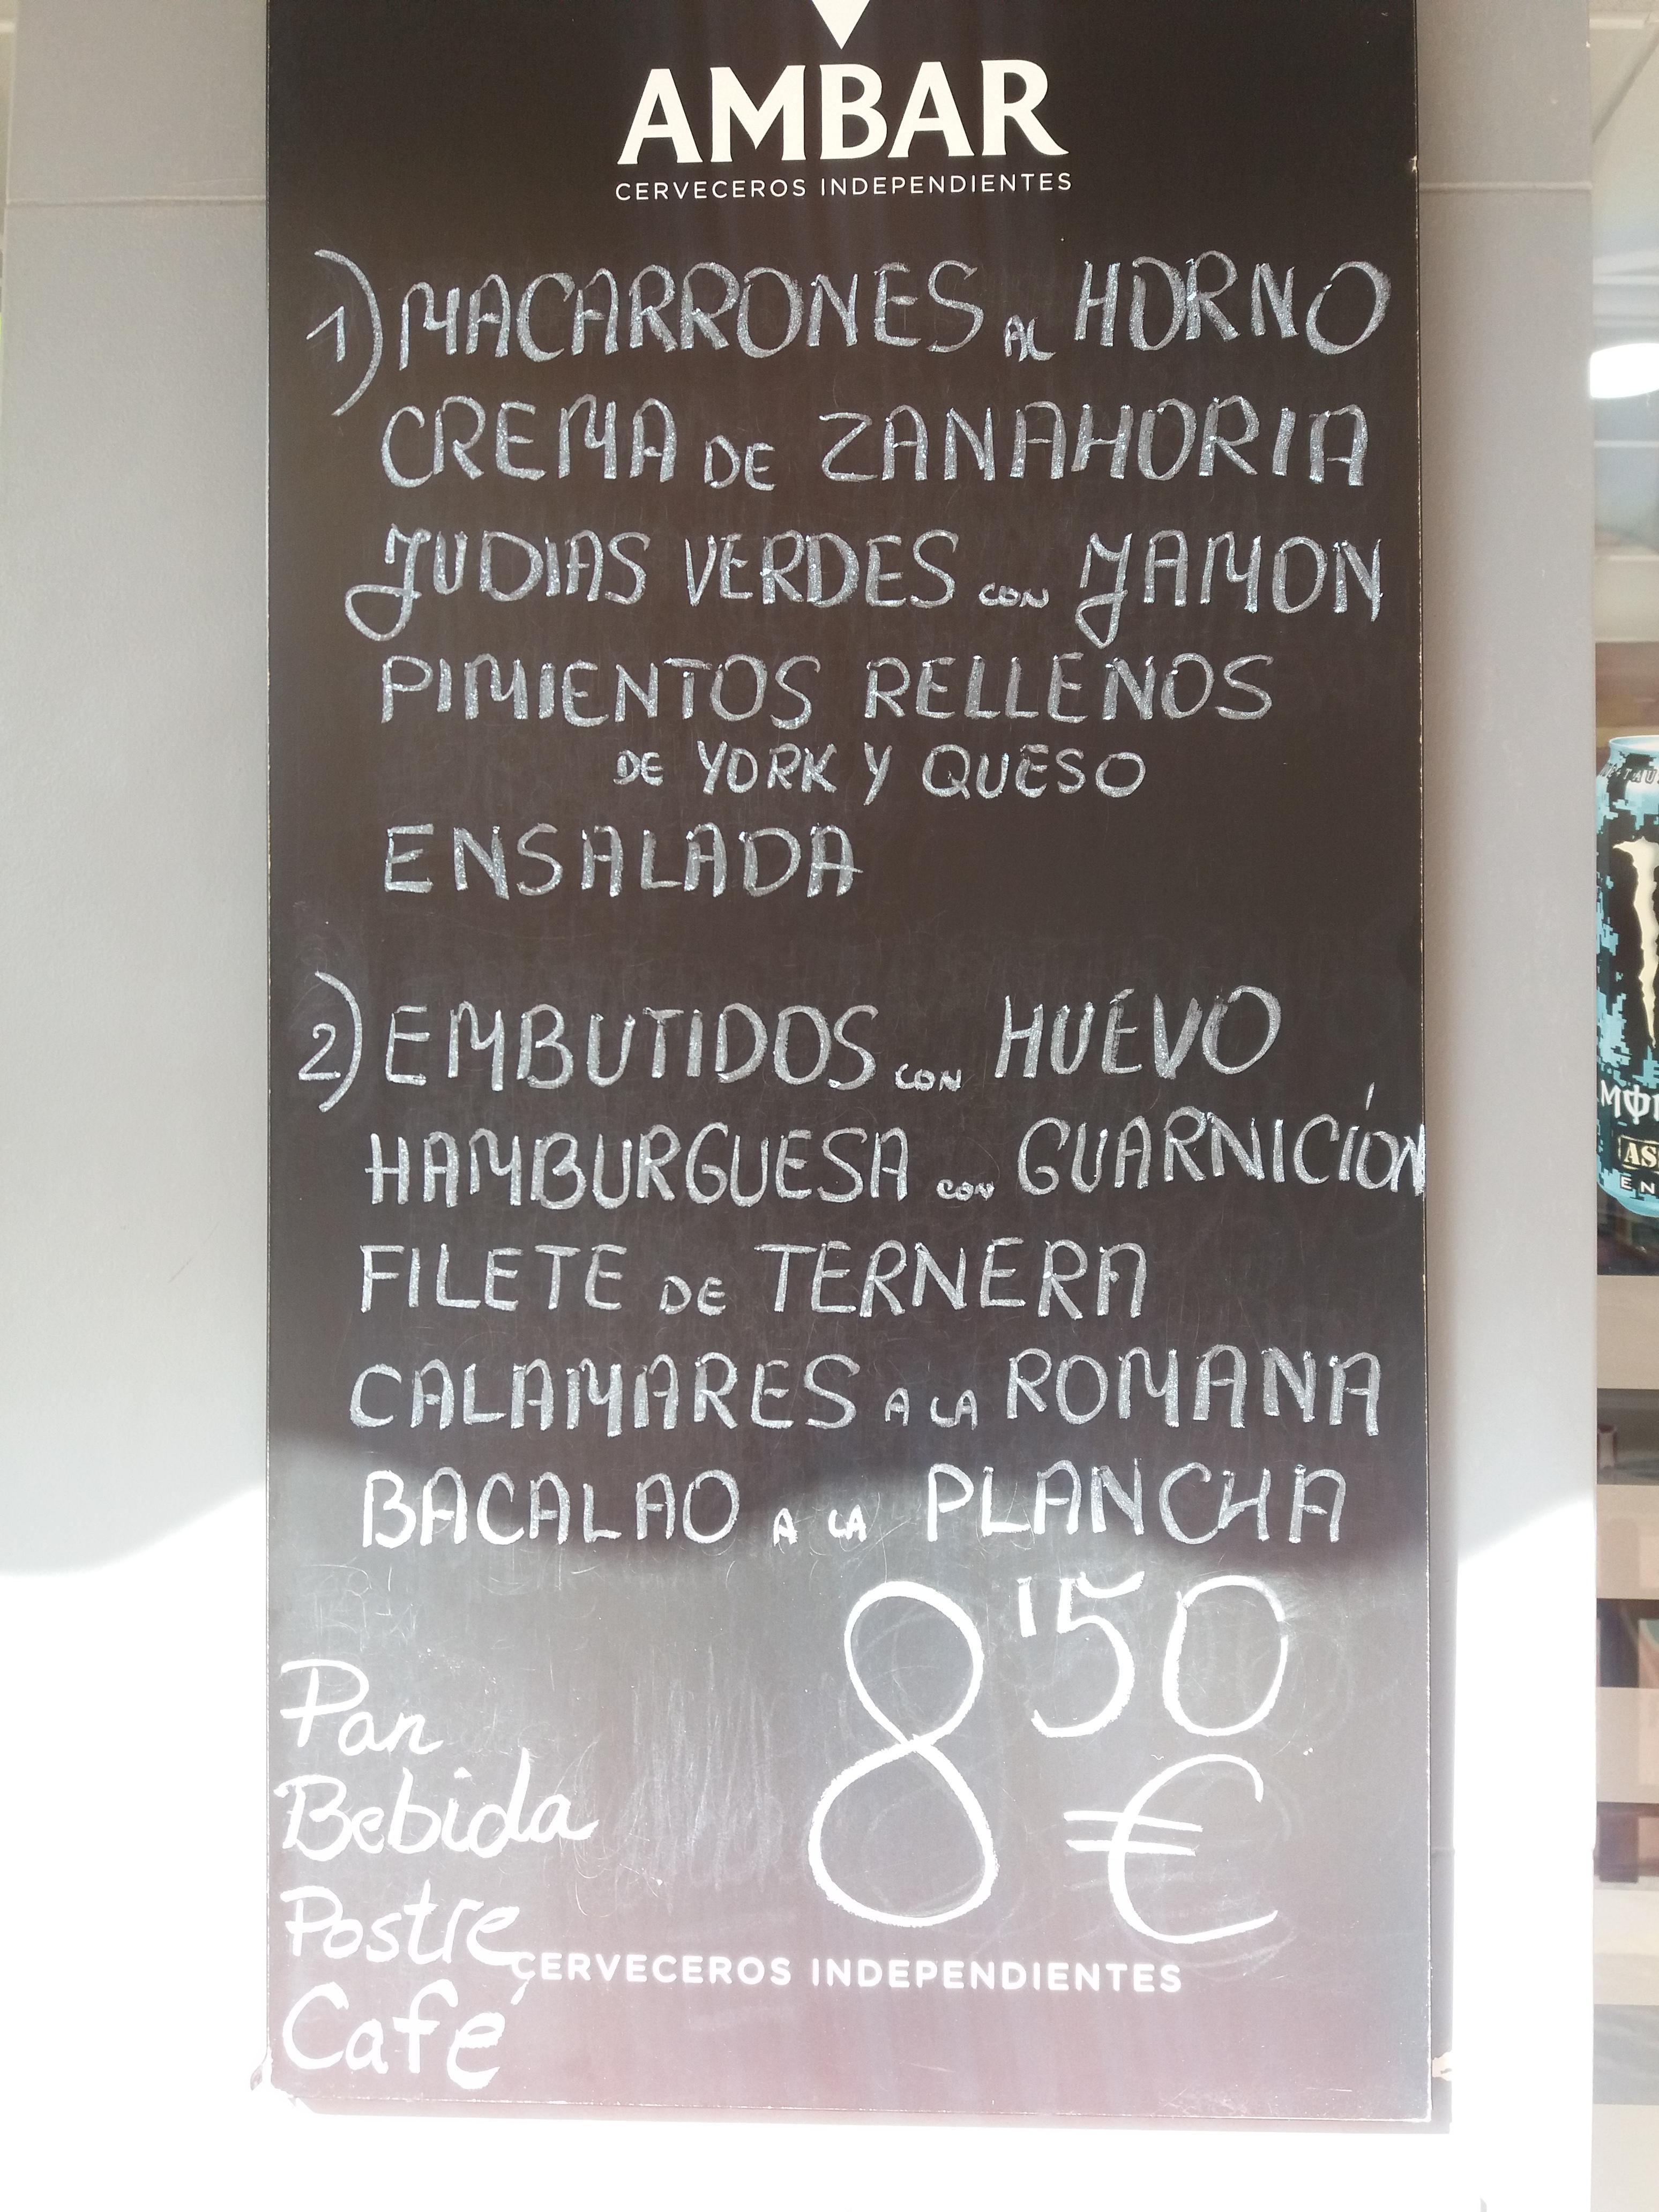 AMBAR
CERVECEROS INDEPENDIENTES
1) MACARRONES AL HORNO
CREMA DE ZANAHORIA
JUDIAS VERDES CON JAMON
PIMIENTOS RELLENOS
DE YORK Y QUESO
ENSALADA
2) EMBUTIDOS CON HUEVO
HAMBURGUESA CON GUARNICIÓN
FILETE DE TERNERA
CALAMARES A LA ROMANA
BACALAO A LA PLANCHA
8'50
€
Pan
Bebida
Postre
Café
CERVECEROS INDEPENDIENTES